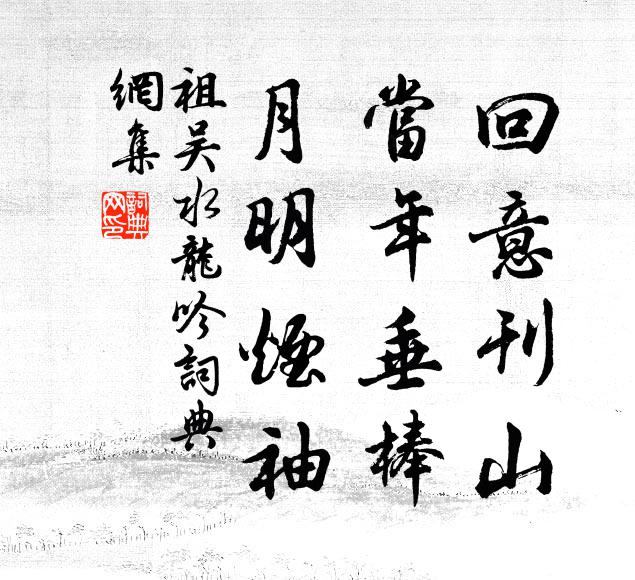 回意刊山
當年垂棒
月明煙袖
祖吴水龍吟詞典
網集
詞典
网印